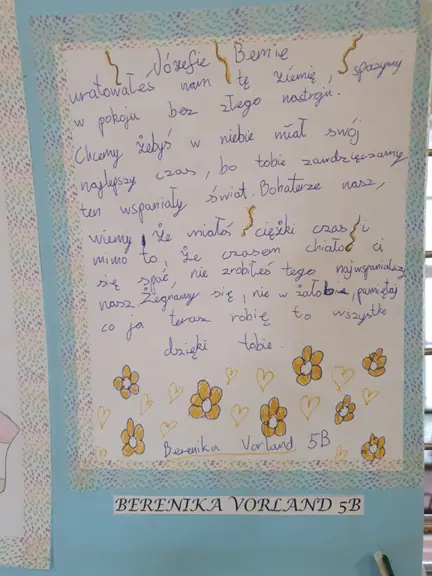 Józefie Bemie
uratowałeś nam tę ziemię, spoczywaj
w pokoju bez złego nastroju.
Chcemy żebyś w niebie miał swój
najlepszy czas, bo tobie zawdzięczamy
ten wspaniały świat. Bohaterze nasz,
wiemy, że miałeś ciężki czas i
mimo to, że czasem chiało ci
się spać, nie zrobiłeś tego najwspanialszy
nasz. Żegnamy się, nie w żałobie, pamiętaj
co ja teraz robię to wszystko
dzięki tobie.
Berenika Vorland 5B
BERENIKA VORLAND 5B